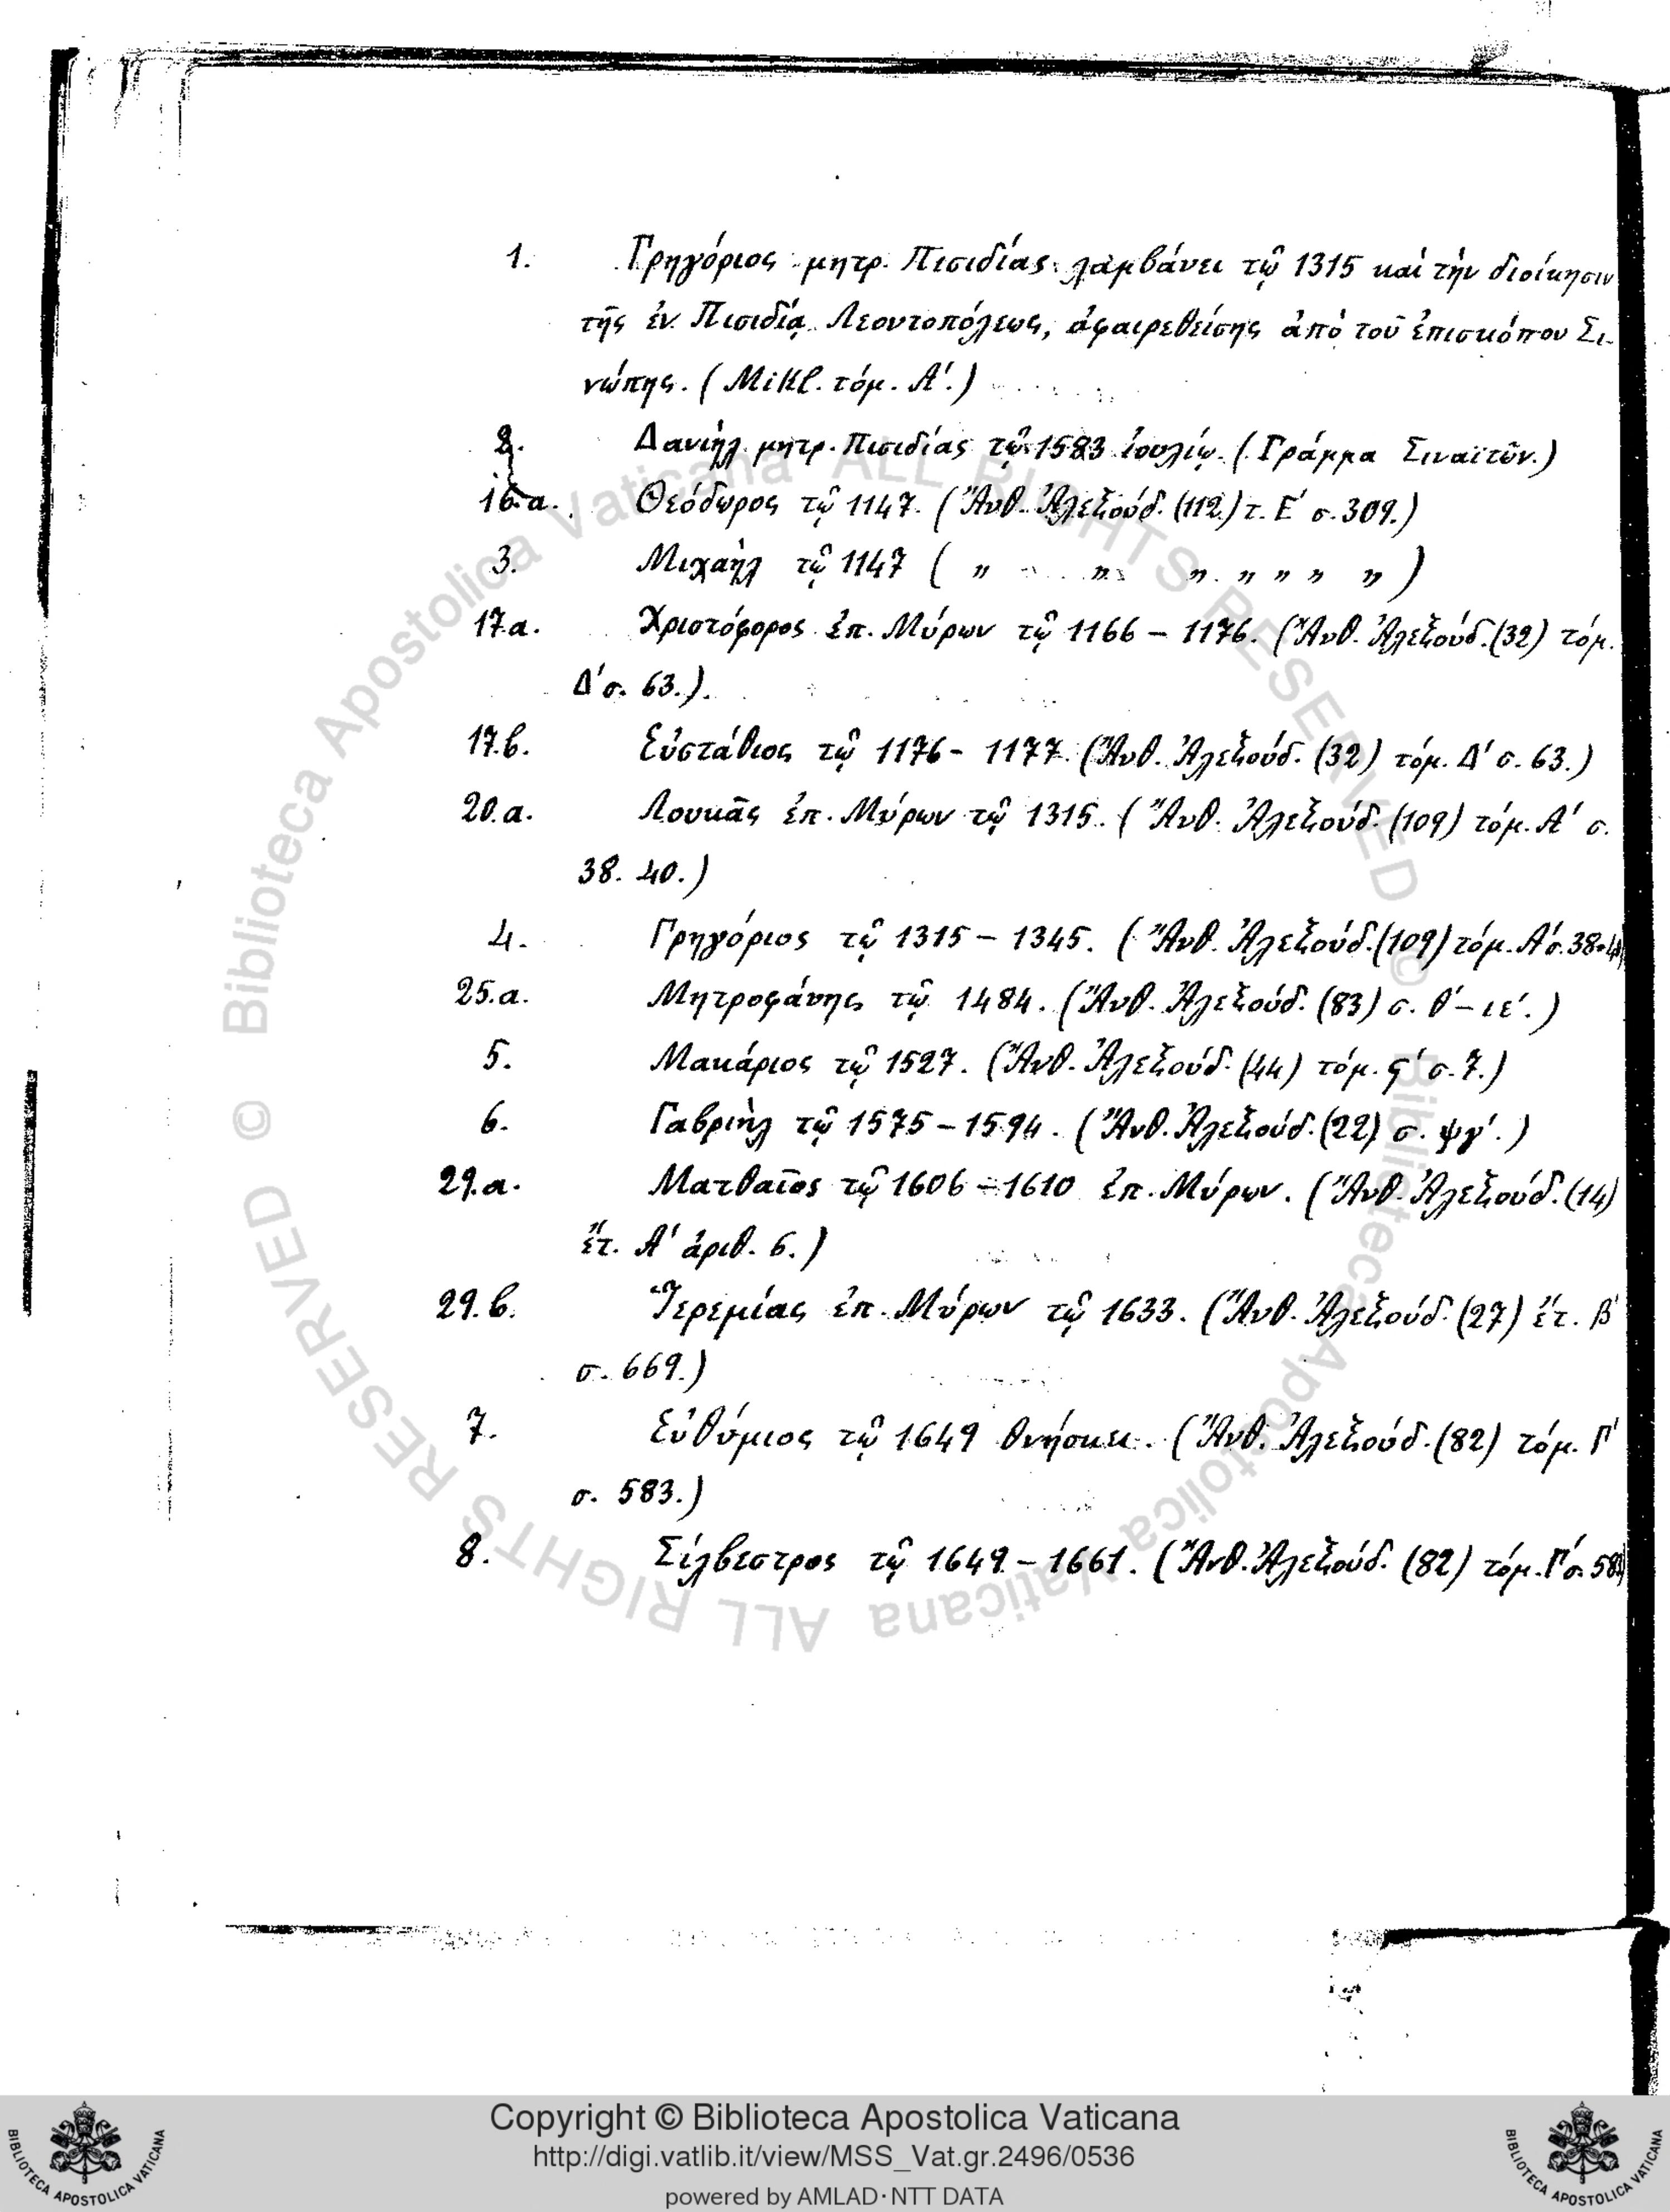 1. Γρηγόριος μητρ. Πισιδίας λαμβάνει τῷ 1315 καὶ τὴν διοίκησιν
τῆς ἐν Πισιδίᾳ Λεοντοπόλεως, ἀφαιρεθείσης ἀπὸ τοῦ ἐπισκόπου Σι-
νώπης. (Mikl. τόμ. Α'.)
2. Δανιὴλ μητρ. Πισιδίας τῷ 1583 ἰουλίῳ. (Γράμμα Σιναϊτῶν.)
16.a. Θεόδωρος τῷ 1147. (Ἄνθ. Ἀλεξούδ. (112) τ. Ε' σ. 309.)
3. Μιχαὴλ τῷ 1147 ( " " " " " " " )
17.a. Χριστόφορος ἐπ. Μύρων τῷ 1166 - 1176. (Ἄνθ. Ἀλεξούδ. (32) τόμ.
Δ' σ. 63.).
17.b. Εὐστάθιος τῷ 1176 - 1177. (Ἄνθ. Ἀλεξούδ. (32) τόμ. Δ' σ. 63.)
20.a. Λουκᾶς ἐπ. Μύρων τῷ 1315. (Ἄνθ. Ἀλεξούδ. (109) τόμ. Α' σ.
38. 40.)
4. Γρηγόριος τῷ 1315 - 1345. (Ἄνθ. Ἀλεξούδ. (109) τόμ. Α' σ. 38.
25.a. Μητροφάνης τῷ 1484. (Ἄνθ. Ἀλεξούδ. (83) σ. θ' - ιε'.)
5. Μακάριος τῷ 1527. (Ἄνθ. Ἀλεξούδ. (44) τόμ. ϛ' σ. 7.)
6. Γαβριὴλ τῷ 1575 - 1594. (Ἄνθ. Ἀλεξούδ. (22) σ. ψγ'.)
29.a. Ματθαῖος τῷ 1606 - 1610 ἐπ. Μύρων. (Ἄνθ. Ἀλεξούδ. (14)
ἔτ. Α' ἀριθ. 6.)
29.b. Ἱερεμίας ἐπ. Μύρων τῷ 1633. (Ἄνθ. Ἀλεξούδ. (27) ἔτ. β'
σ. 669.)
7. Εὐθύμιος τῷ 1649 θνήσκει. (Ἄνθ. Ἀλεξούδ. (82) τόμ. Γ'
σ. 583.)
8. Σίλβεστρος τῷ 1649 - 1661. (Ἄνθ. Ἀλεξούδ. (82) τόμ. Γ' σ.
© Biblioteca Apostolica Vaticana ALL RIGHTS RESERVED © Biblioteca Apostolica Vaticana ALL RIGHTS RESERVED
Copyright © Biblioteca Apostolica Vaticana
http://digi.vatlib.it/view/MSS_Vat.gr.2496/0536
powered by AMLAD·NTT DATA
BIBLIOTECA APOSTOLICA VATICANA
BIBLIOTECA APOSTOLICA VATICANA